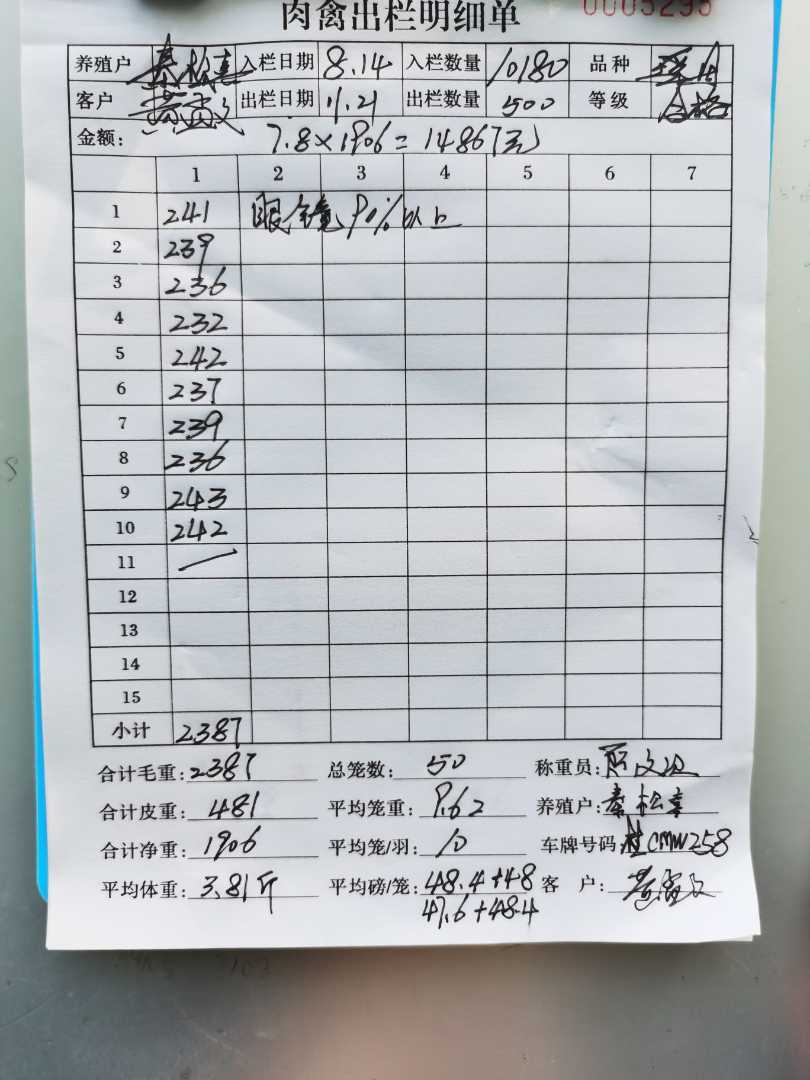 肉禽出栏明细单
养殖户 秦松喜 入栏日期 8.14 入栏数量 10180 品种
客户 出栏日期 11.21 出栏数量 500 等级 合格
金额: 7.8×1906=14867元
1 2 3 4 5 6 7
1 241 眼镜90%以上
2 239
3 236
4 232
5 242
6 237
7 239
8 236
9 243
10 242
11
12
13
14
15
小计 2387
合计毛重: 2387 总笼数: 50 称重员:
合计皮重: 481 平均笼重: 9.62 养殖户: 秦松喜
合计净重: 1906 平均笼/羽: 10 车牌号码: 桂CMW258
平均体重: 3.81斤 平均磅/笼: 48.4+48 客 户:
47.6+48.4